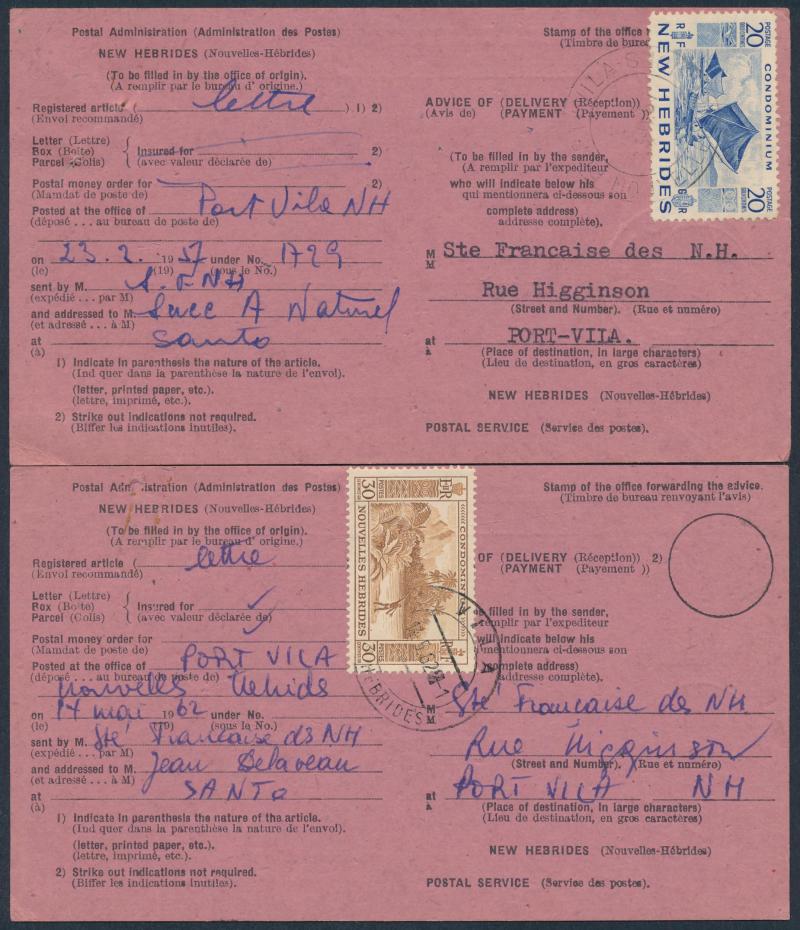 Postal Administration (Administration des Postes)
NEW HEBRIDES (Nouvelles-Hébrides)
(To be filled in by the office of origin).
(A remplir par le bureau d' origine.)
Registered article ( lettre ) 1) 2)
(Envoi recommandé)
Letter (Lettre)
Box (Boite)
Parcel (Colis)
Insured for 2)
(avec valeur déclarée de)
Postal money order for 2)
(Mamdat de poste de)
Posted at the office of Port Vila NH
(déposé ... au bureau de poste de)
on 23.2. 1957 under No. 1729
(le) (19) (sous le No.)
sent by M. S.F.NH
(expédié ... par M)
and addressed to M. Succ A Naturel
(et adressé ... à M)
at Santo
(à)
1) Indicate in parenthesis the nature of the article.
(Ind quer dans la parenthèse la nature de l'envol).
(letter, printed paper, etc.).
(lettre, imprimé, etc.).
2) Strike out indications not required.
(Biffer les indications inutiles).
Stamp of the office
(Timbre de bureau
ADVICE OF (DELIVERY (Réception))
(Avis de) (PAYMENT (Payement))
(To be filled in by the sender,
(A remplir par l'expediteur
who will indicate below his
qui mentionnera ci-dessous son
complete address)
addresse complète).
M Ste Francaise des N.H.
M
Rue Higginson
(Street and Number). (Rue et numéro)
at PORT-VILA.
à (Place of destination, in large characters)
(Lieu de destination, en gros caractères)
NEW HEBRIDES (Nouvelles-Hébrides)
POSTAL SERVICE (Service des postes).
20 POSTAGE 20
CONDOMINIUM
RF NEW HEBRIDES GR
Postal Administration (Administration des Postes)
NEW HEBRIDES (Nouvelles-Hébrides)
(To be filled in by the office of origin).
(A remplir par le bureau d' origine.)
Registered article ( lettre
(Envoi recommandé)
Letter (Lettre)
Box (Boite)
Parcel (Colis)
Insured for
(avec valeur déclarée de)
Postal money order for
(Mandat de poste de)
Posted at the office of PORT VILA
(déposé ... au bureau de poste de)
Nouvelles Hebrides
on 14 mai 1962 under No.
(le) (19) (sous le No.)
sent by M. Sté Française des NH
(expédié ... par M)
and addressed to M. Jean Delaveau
(et adressé ... à M)
at SANTO
(à)
1) Indicate in parenthesis the nature of the article.
(Ind quer dans la parenthèse la nature de l'envoi).
(letter, printed paper, etc.).
(lettre, imprimé, etc.).
2) Strike out indications not required.
(Biffer les indications inutiles).
30 POSTES 30
NOUVELLES HEBRIDES
CONDOMINIUM
EIIR RF
VILA
HEBRIDES
Stamp of the office forwarding the advice.
(Timbre de bureau renvoyant l'avis)
OF (DELIVERY (Réception)) 2)
(PAYMENT (Payement ))
be filled in by the sender,
remplir par l'expediteur
will indicate below his
mentionnera ci-dessous son
complete address)
addresse complète).
M Sté Française des NH
M
Rue Higginson
(Street and Number). (Rue et numéro)
at PORT VILA NH
à (Place of destination, in large characters)
(Lieu de destination, en gros caractères)
NEW HEBRIDES (Nouvelles-Hébrides)
POSTAL SERVICE (Service des postes).